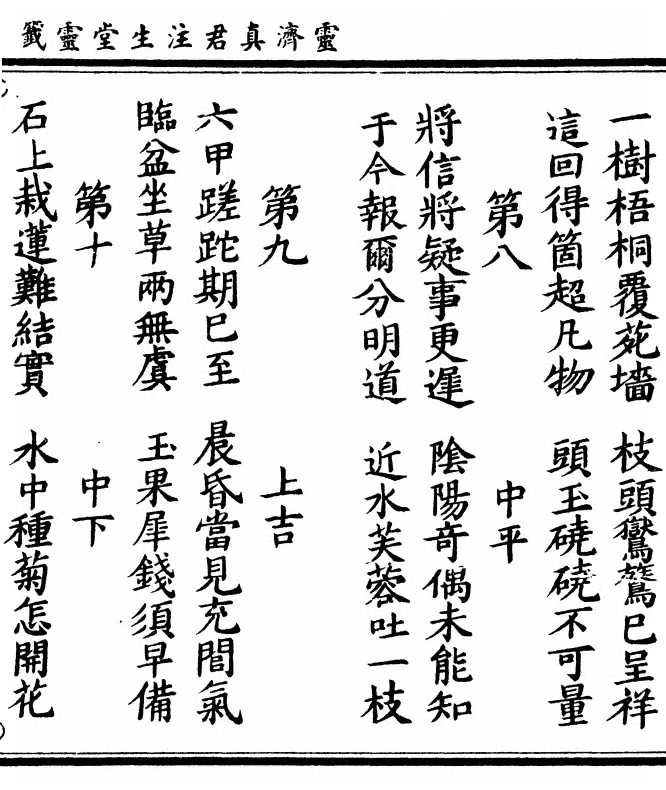 靈濟真君注生堂靈籤
一樹梧桐覆苑墻　枝頭鸑鷟已呈祥
這回得箇超凡物　頭玉磽磽不可量
第八　中平
將信將疑事更遲　陰陽奇偶未能知
于今報爾分明道　近水芙蓉吐一枝
第九　上吉
六甲蹉跎期已至　晨昏當見充閭氣
臨盆坐草兩無虞　玉果犀錢須早備
第十　中下
石上栽蓮難結實　水中種菊怎開花